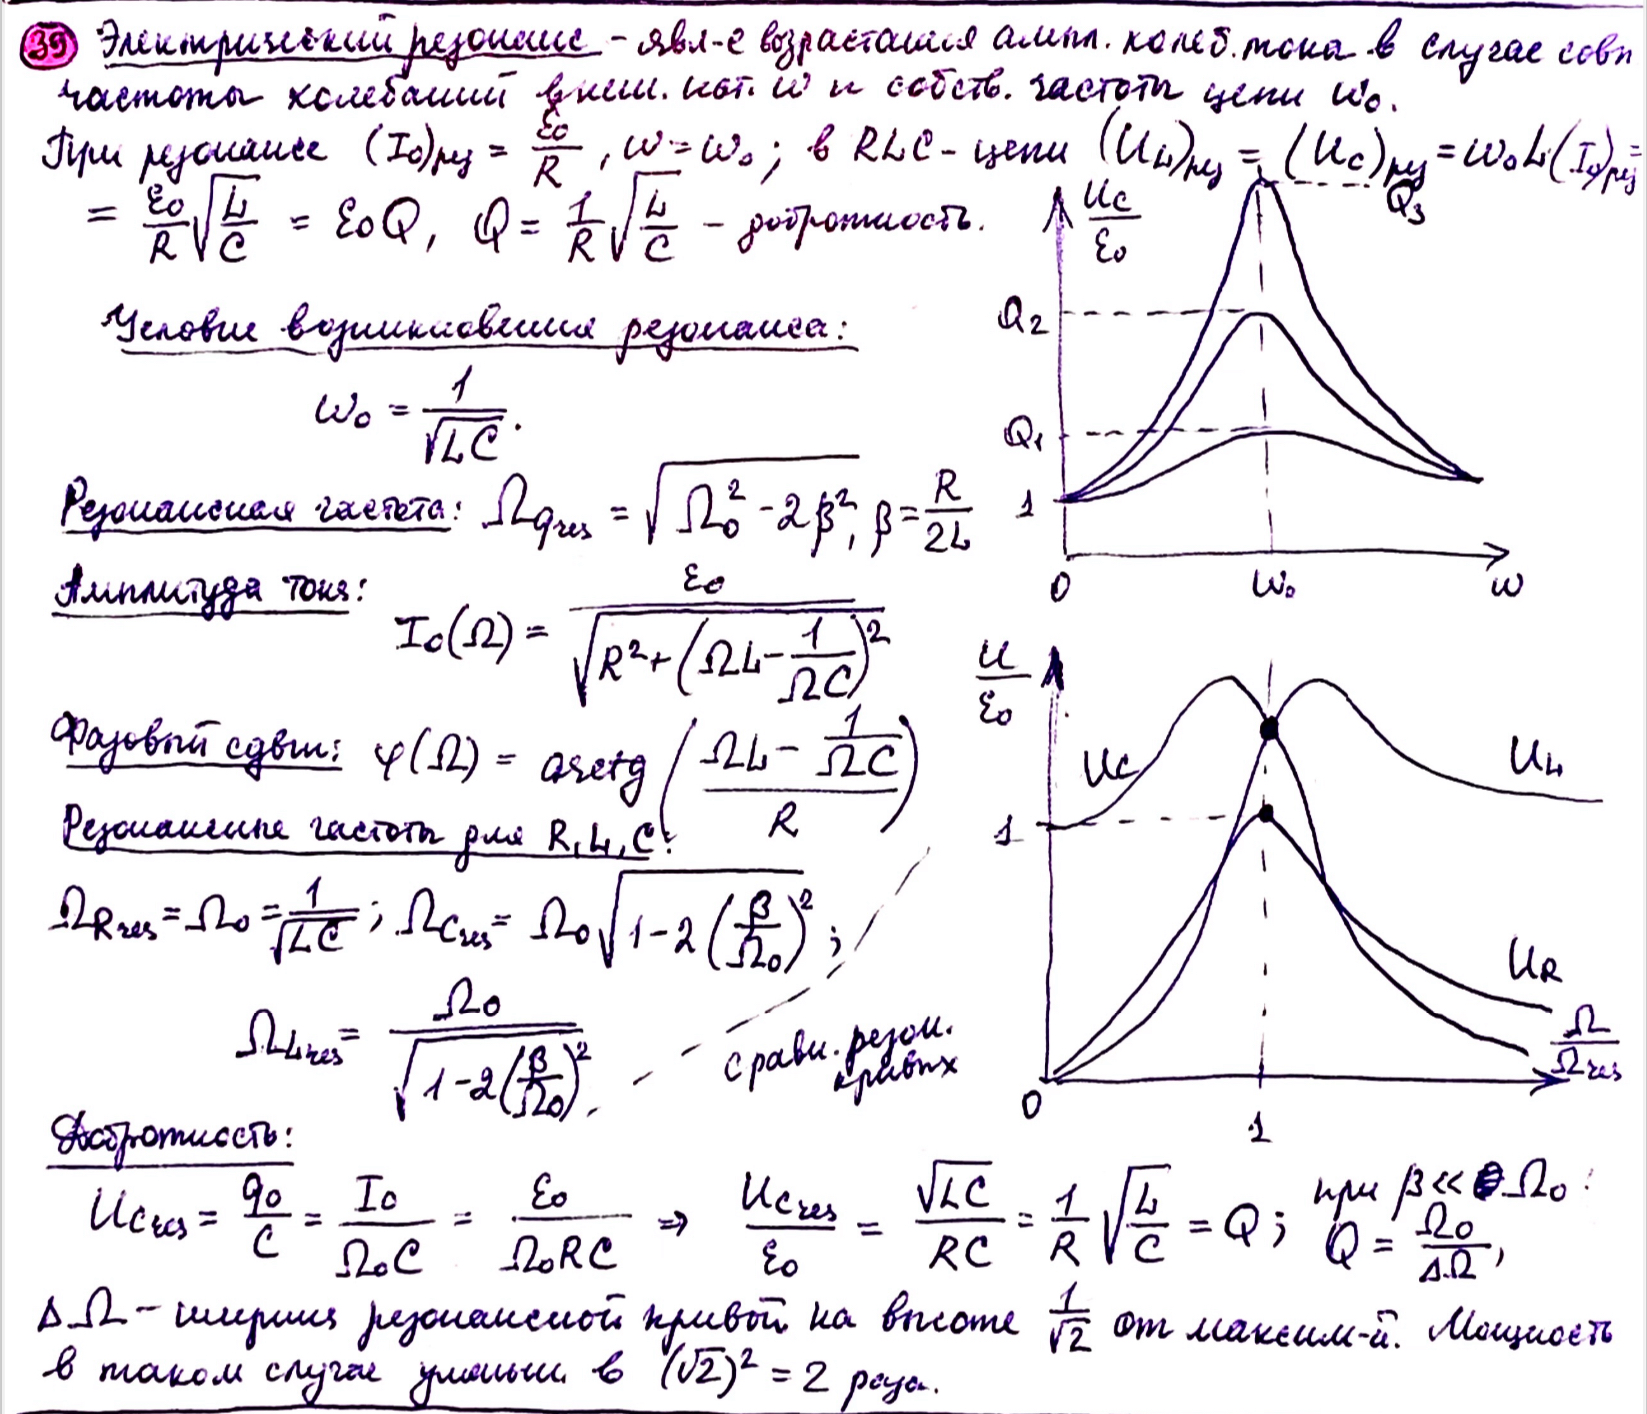 39 Электрический резонанс – явл-е возрастания ампл. колеб. тока в случае совп
частоты колебаний внеш. ист. ω и собств. частоты цепи ω₀.
При резонансе (I₀)рез = ε₀/R, ω = ω₀; в RLC-цепи (U_L)рез = (U_C)рез = ω₀L(I₀)рез =
= ε₀/R √(L/C) = ε₀Q, Q = 1/R √(L/C) – добротность.
Условие возникновения резонанса:
ω₀ = 1/√(LC).
Резонансная частота: Ω_q res = √(Ω₀² - 2β²), β = R/2L
Амплитуда тока:
I₀(Ω) = ε₀/√(R² + (ΩL - 1/ΩC)²)
Фазовый сдвиг: φ(Ω) = arctg((ΩL - 1/ΩC)/R)
Резонансные частоты для R, L, C:
Ω_R res = Ω₀ = 1/√(LC); Ω_C res = Ω₀√(1-2(β/Ω₀)²);
Ω_L res = Ω₀/√(1-2(β/Ω₀)²).
сравн. резон.
кривых
U_C/ε₀
Q₃
Q₂
Q₁
1
0 ω₀ ω
U/ε₀
U_C U_L
1
U_R
Ω/Ω_res
0
1
Добротность:
U_C res = q₀/C = I₀/Ω₀C = ε₀/Ω₀RC ⇒ U_C res/ε₀ = √(LC)/RC = 1/R √(L/C) = Q; при β << Ω₀:
Q = Ω₀/ΔΩ,
ΔΩ – ширина резонансной кривой на высоте 1/√2 от максим-й. Мощность
в таком случае уменьш. в (√2)² = 2 раза.